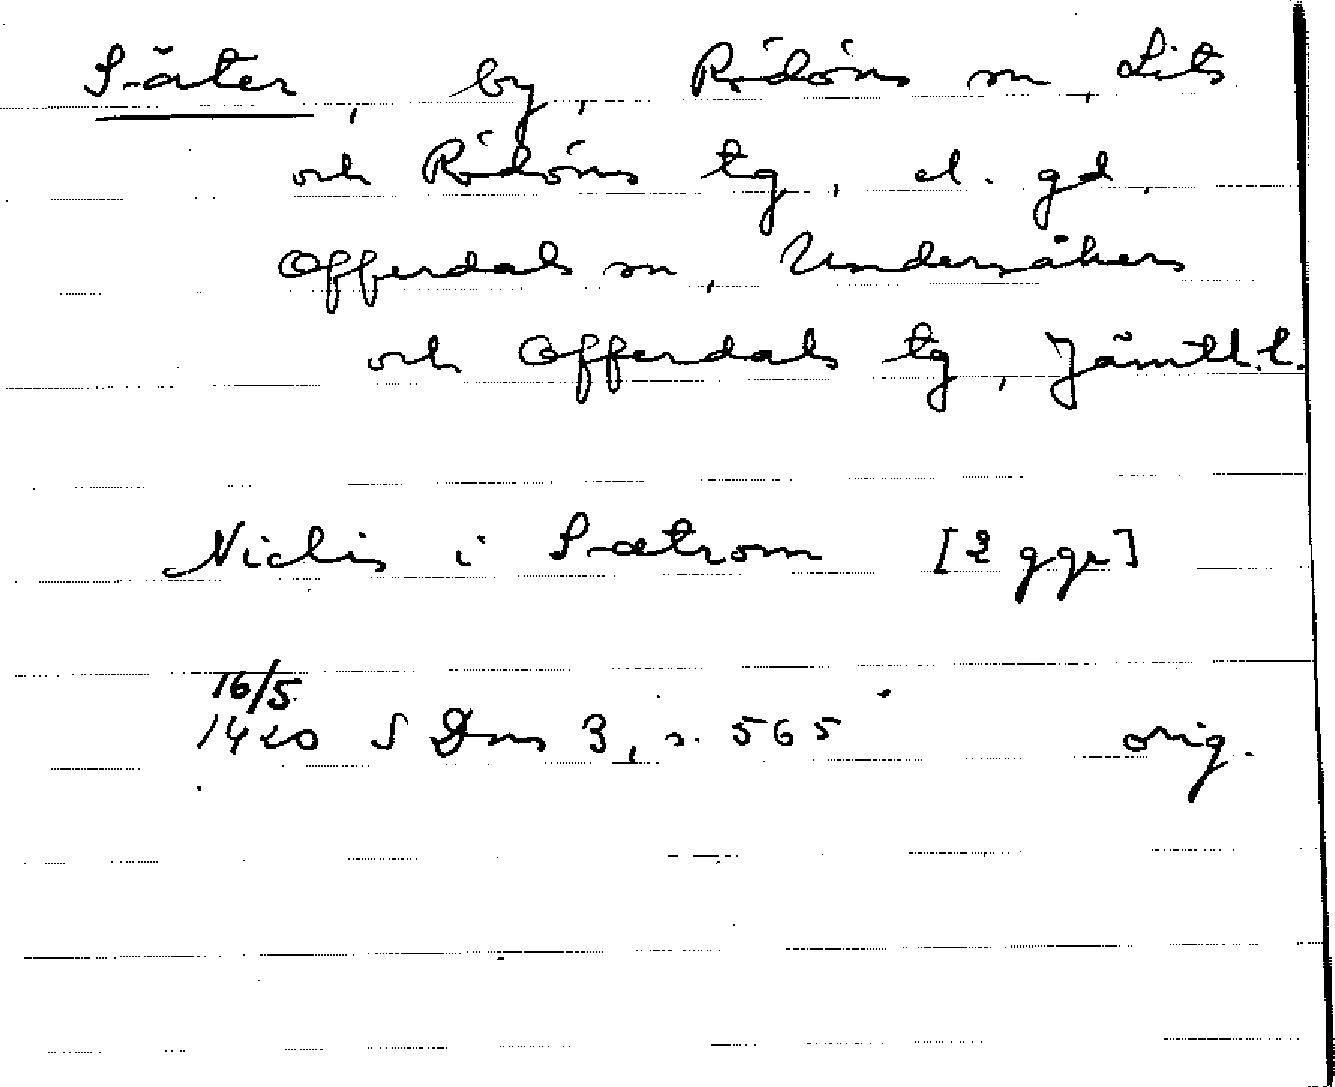 Säter, by, Rödöns sn, Lits
och Rödöns tg, el. gd,
Offerdals sn, Undersåkers
och Offerdals tg, Jämtl.l.
Niclis i Sætrom [2 ggr]
16/5
1420 SDns 3, s. 565 orig.